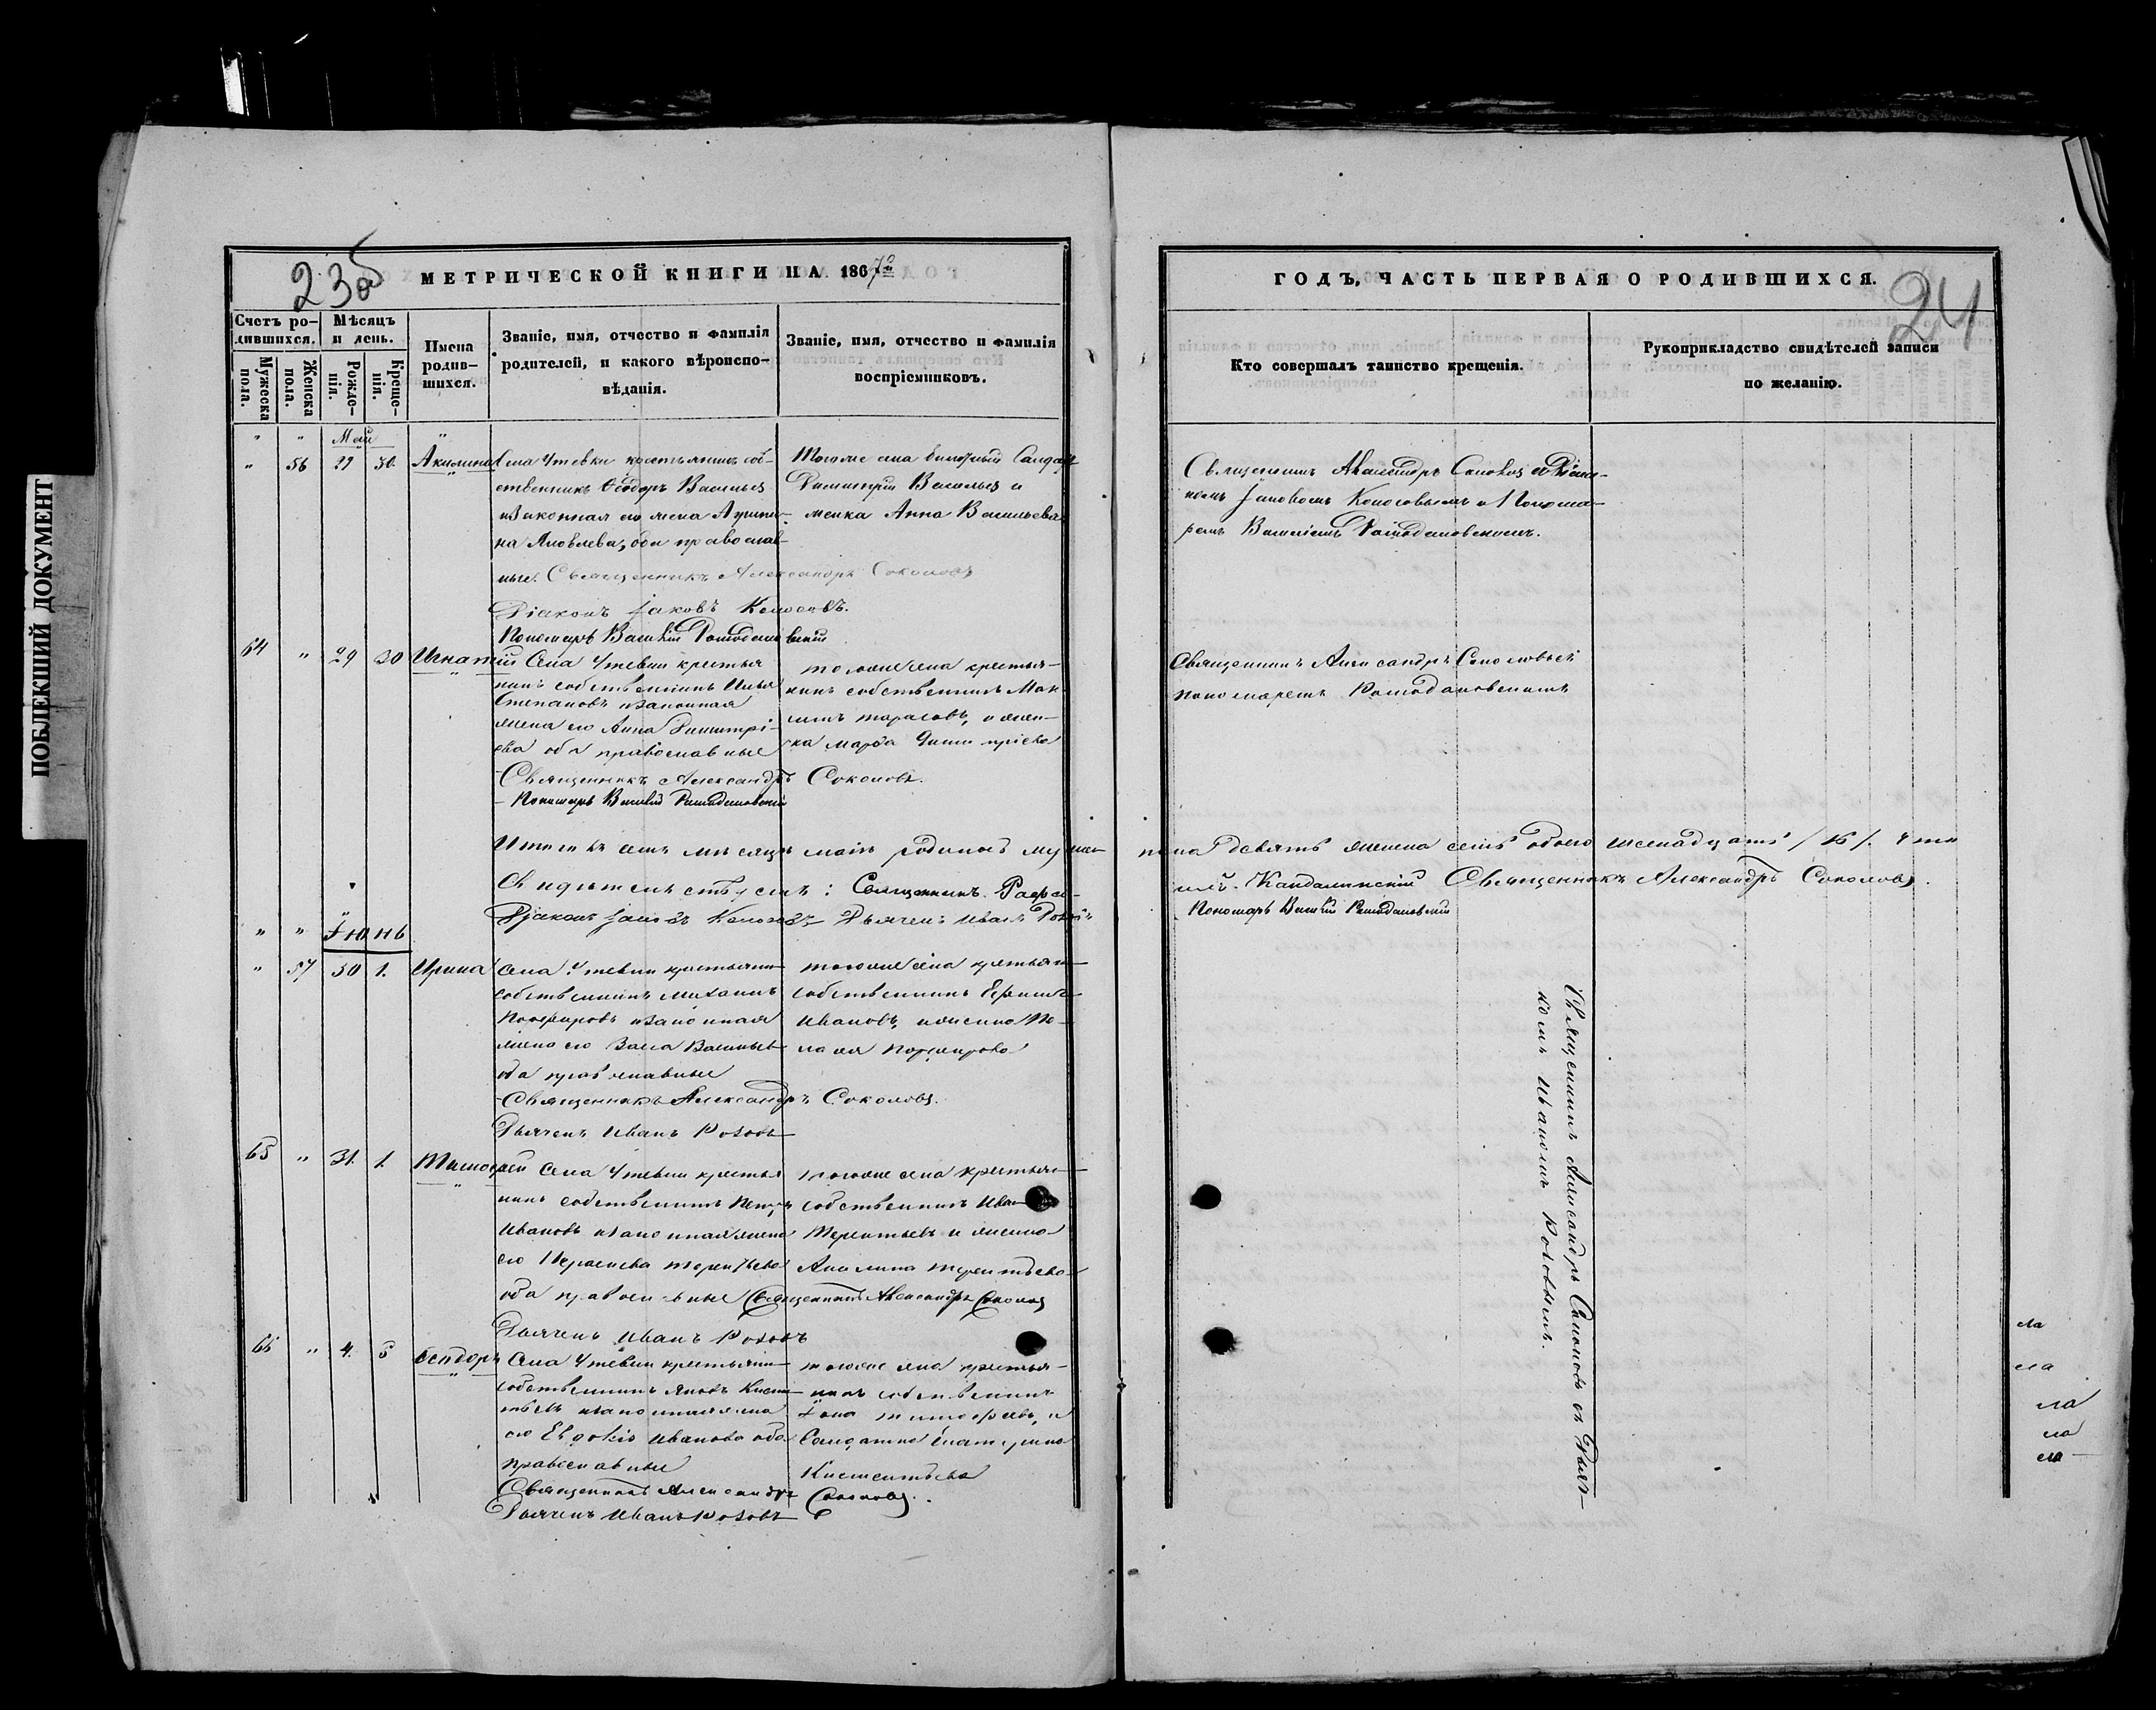 ПОБЛЕКШИЙ ДОКУМЕНТ
23об
МЕТРИЧЕСКОЙ КНИГИ НА 1867го
Счетъ ро-
дившихся.
Мѣсяцъ
и день.
Имена
родив-
шихся.
Званіе, имя, отчество и фамилія
родителей, и какого вѣроиспо-
вѣданія.
Званіе, имя, отчество и фамилія
воспріемниковъ.
Мужеска
пола.
Женска
пола.
Рожде-
нія.
Креще-
нія.
Май
56 29 30. Акилина
Села Утевки крестьянинъ соб-
ственникъ Ѳеодоръ Васильевъ
и законная его жена Агрипи-
на Яковлева, оба православ-
ные. Священникъ Александръ Соколовъ
Діаконъ Іаковъ Колосовъ.
Пономарь Василій Ромодановскій
Тогоже села билетный Солдатъ
Димитрій Васильевъ и
женка Анна Васильева
64 29 30 Игнатій
Села Утевки крестья
нинъ собственникъ Илья
Степановъ и законная
жена его Анна Димитрі-
ева оба православные
Священникъ Александръ Соколовъ.
Пономарь Василій Ромодановскій
тогоже села крестья-
нинъ собственникъ Мак
симъ Тарасовъ, и жен-
ка Марфа Димитріева
Итого въ семъ мѣсяцѣ маіѣ родилось мужес
Свидѣтельствуемъ: Священникъ
Діаконъ Іаковъ Колосовъ Дьячекъ Иванъ Розовъ
Іюнь
57 30 1. Ирина
села Утевки крестьянин
собственникъ Михаилъ
Порфировъ и законная
жена его Васса Васильев
оба православные
Священникъ Александръ Соколовъ.
Дьячекъ Иванъ Розовъ
тогоже села крестьян
собственникъ
Ивановъ, и женка Пе-
лагея Порфирова
65 31. 1. Тимофей
Села Утевки крестья
нинъ собственникъ Петръ
Ивановъ и законная жена
его Параскева Терентьева
оба православные Священникъ Александръ Соколовъ
Дьячекъ Иванъ Розовъ
тогоже села крестьян
собственникъ Иван
Терентьевъ и женка
Акилина Терентьева
66 4. 5 Ѳеодоръ
Села Утевки крестьянин
собственникъ Яковъ Климен
тьевъ и законная жена
его Евдокія Иванова оба
православные
Священникъ Александръ Соколовъ.
Дьячекъ Иванъ Розовъ
тогоже села крестья-
нинъ собственникъ
Іона Тимофеевъ, и
Солдатка Екатерина
Климентьева
24
ГОДЪ, ЧАСТЬ ПЕРВАЯ О РОДИВШИХСЯ.
Кто совершалъ таинство крещенія.
Рукоприкладство свидѣтелей записи
по желанію.
Священникъ Александръ Соколовъ съ Діако-
номъ Іаковомъ Колосовымъ и Понома-
ремъ Василіемъ Ромодановскимъ.
Священникъ Александръ Соколовъ съ
пономаремъ Ромодановскимъ
пола девять женска семь обоего шеснадцать /16/. Что
Кандалинскій Священникъ Александръ Соколовъ.
Пономарь Василій Ромодановскій
Священникъ Александръ Соколовъ съ Дьяч-
комъ Иваномъ Розовымъ.
ла
ла
ла
ла